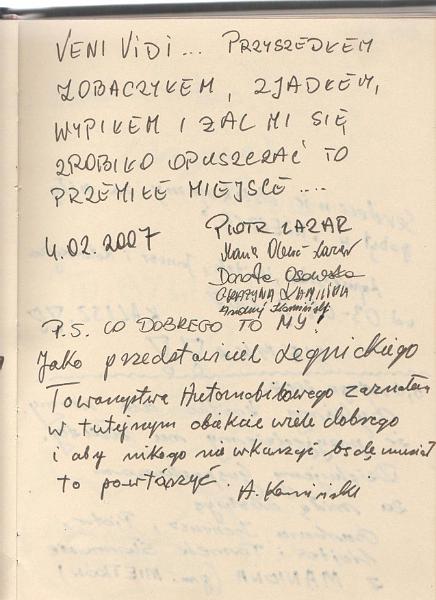 VENI VIDI... PRZYSZEDŁEM
ZOBACZYŁEM, ZJADŁEM,
WYPIŁEM I ŻAL MI SIĘ
ZROBIŁO OPUSZCZAĆ TO
PRZEMIŁE MIEJSCE ....
4.02.2007
PIOTR LAZAR
Lazar
Dorota Osowska
GRAŻYNA KAMIŃSKA
Andrzej Kamiński
P.S. CO DOBREGO TO MY!
Jako przedstawiciel Legnickiego
Towarzystwa Automobilowego zaznałem
w tutejszym obiekcie wiele dobrego
i aby nikogo nie wkurzyć będę musiał
to powtórzyć. A. Kamiński